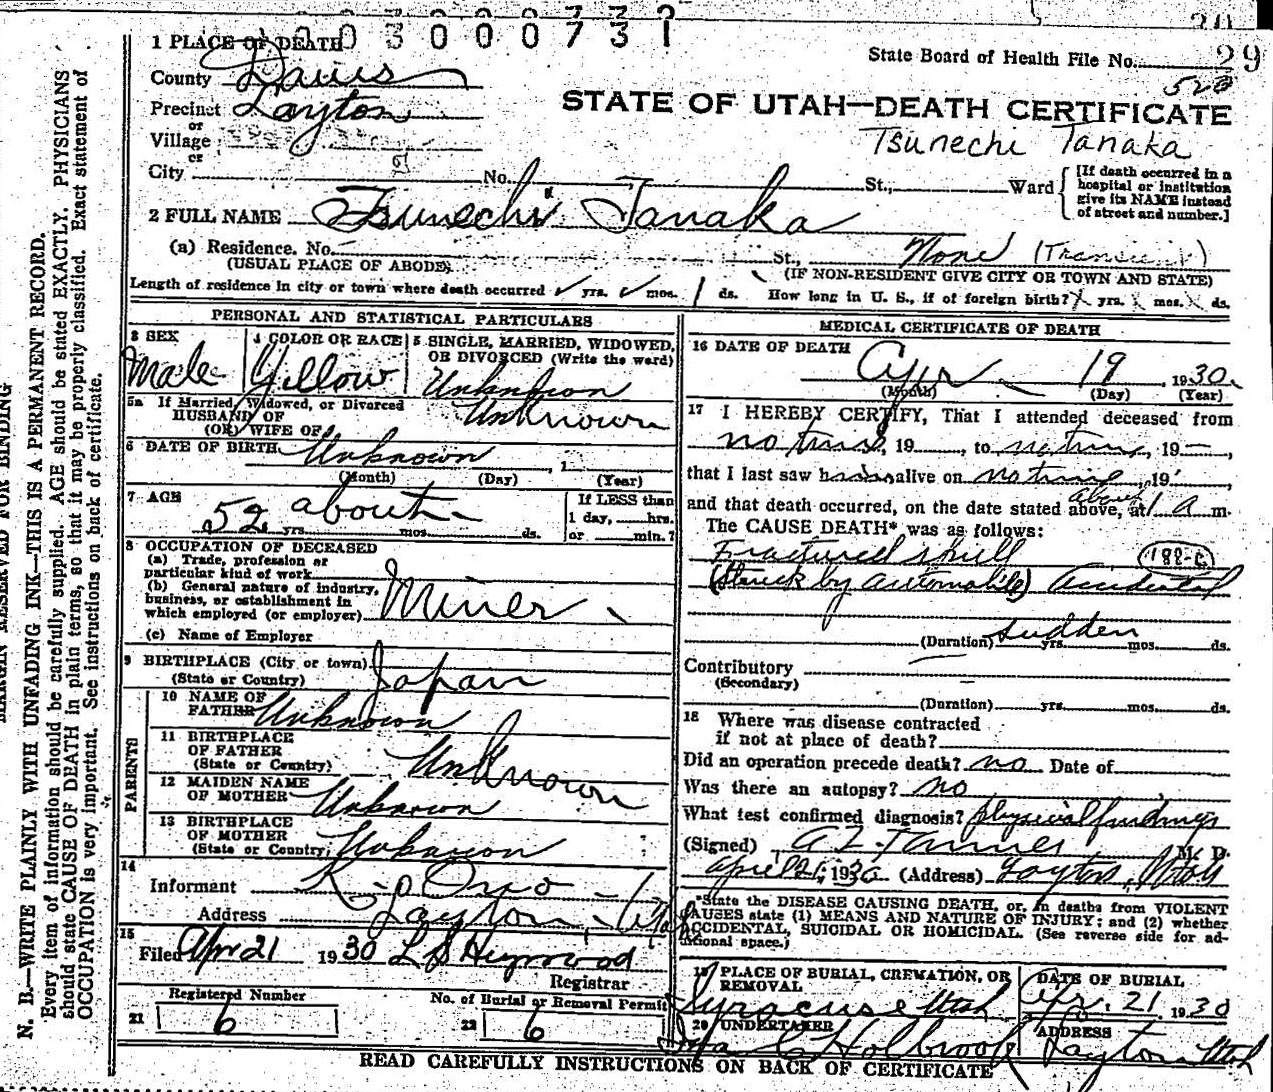 0 0 3 0 0 0 7 3 1
1 PLACE OF DEATH
State Board of Health File No. 29
County Davis
523
Precinct Layton
STATE OF UTAH—DEATH CERTIFICATE
or
Village
Tsunechi Tanaka
or
City No. St., Ward
[If death occurred in a hospital or institution give its NAME instead of street and number.]
2 FULL NAME Tsunechi Tanaka
(a) Residence. No. St., None (Transient)
(USUAL PLACE OF ABODE)
(IF NON-RESIDENT GIVE CITY OR TOWN AND STATE)
Length of residence in city or town where death occurred ✓ yrs. ✓ mos. 1 ds. How long in U. S., if of foreign birth? X yrs. X mos. X ds.
PERSONAL AND STATISTICAL PARTICULARS
3 SEX
Male
4 COLOR OR RACE
Yellow
5 SINGLE, MARRIED, WIDOWED, OR DIVORCED (Write the word)
Unknown
5a If Married, Widowed, or Divorced
HUSBAND OF
(OR) WIFE OF
Unknown
6 DATE OF BIRTH Unknown , 1
(Month) (Day) (Year)
7 AGE
52 about
yrs. mos. ds.
If LESS than
1 day, hrs.
or min.?
8 OCCUPATION OF DECEASED
(a) Trade, profession or
particular kind of work
(b) General nature of industry,
business, or establishment in
which employed (or employer)
Miner
(c) Name of Employer
9 BIRTHPLACE (City or town)
(State or Country)
Japan
PARENTS
10 NAME OF
FATHER Unknown
11 BIRTHPLACE
OF FATHER
(State or Country) Unknown
12 MAIDEN NAME
OF MOTHER Unknown
13 BIRTHPLACE
OF MOTHER
(State or Country) Unknown
14
Informant
Address Layton
15
Filed Apr 21 1930 L S Heywood
Registrar
Registered Number
21 6
No. of Burial or Removal Permit
22 6
MEDICAL CERTIFICATE OF DEATH
16 DATE OF DEATH
Apr 19, 1930
(Month) (Day) (Year)
17 I HEREBY CERTIFY, That I attended deceased from
no time, 19 , to no time, 19—,
that I last saw h alive on no time, 19 ,
and that death occurred, on the date stated above, at about 1 A m.
The CAUSE DEATH* was as follows:
Fractured skull
188-c
(Struck by automobile) Accidental
(Duration) sudden yrs. mos. ds.
Contributory
(Secondary)
(Duration) yrs. mos. ds.
18 Where was disease contracted
if not at place of death?
Did an operation precede death? no Date of
Was there an autopsy? no
What test confirmed diagnosis? physical findings
(Signed) A Z Tanner M. D.
April 21, 1930 (Address) Layton, Utah
*State the DISEASE CAUSING DEATH, or, in deaths from VIOLENT
CAUSES state (1) MEANS AND NATURE OF INJURY; and (2) whether
ACCIDENTAL, SUICIDAL OR HOMICIDAL. (See reverse side for ad-
ditional space.)
19 PLACE OF BURIAL, CREMATION, OR
REMOVAL
Syracuse Utah
DATE OF BURIAL
Apr. 21 1930
20 UNDERTAKER
Holbrook
ADDRESS
Layton Utah
READ CAREFULLY INSTRUCTIONS ON BACK OF CERTIFICATE
MARGIN RESERVED FOR BINDING
N. B.—WRITE PLAINLY WITH UNFADING INK—THIS IS A PERMANENT RECORD.
Every item of information should be carefully supplied. AGE should be stated EXACTLY. PHYSICIANS
should state CAUSE OF DEATH in plain terms, so that it may be properly classified. Exact statement of
OCCUPATION is very important. See instructions on back of certificate.